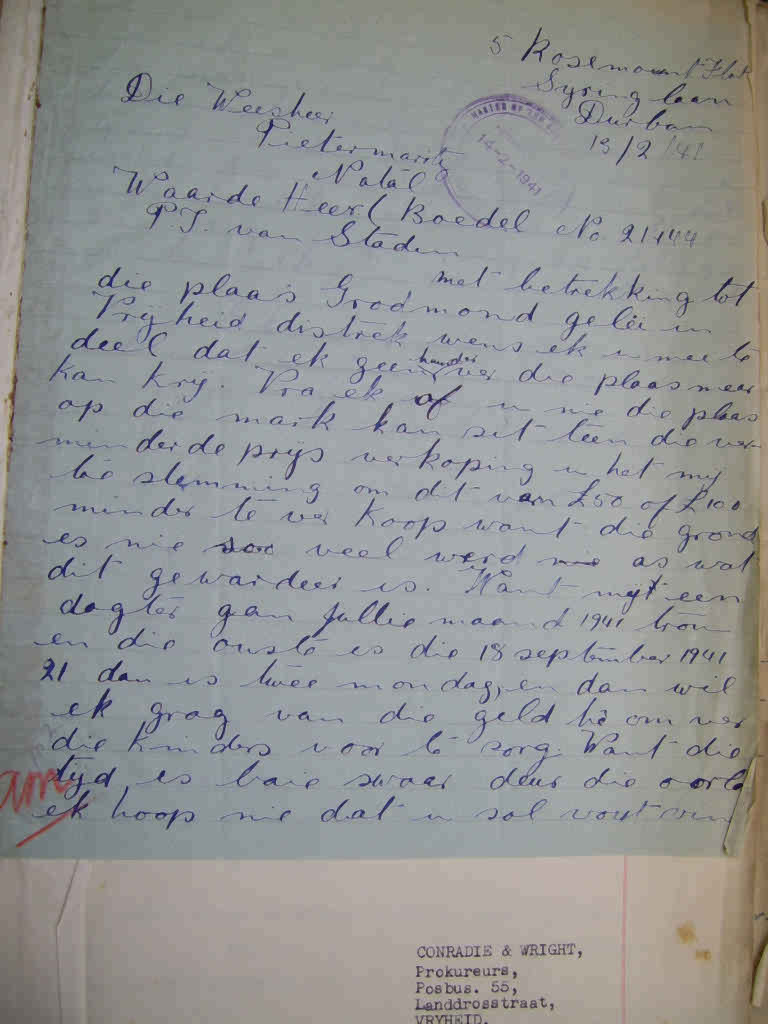 5 Rosemount Flat
Syring laan
Durban
13/2/41
Die Weesheer
Pietermaritz
Natal
MASTER OF THE
14-2-1941
Waarde Heer (Boedel No. 21444
P.J. van Staden
met betrekking tot
die plaas Grodmond geleë in
Vrijheid distrek wens ek u mee te
deel dat ek geen huurder ver die plaas meer
kan krij. Vra ek of u nie die plaas
op die mark kan set teen die ver
minderde prijs verkoping u het my
toe stemming om dit van £50 of £100
minder te ver koop want die grond
es nie soo veel werd nie as wat
dit gewardeer is. Want myt een
dagter gan Jullie maand 1941 trou
en die ouste is die 18 september 1941
21 dan is twee mondag, en dan wil
ek grag van die geld hê om ver
die kinders voor te sorg. Want die
tyd is baie swaar deur die oorlo
ek hoop nie dat u sal
CONRADIE & WRIGHT,
Prokureurs,
Posbus. 55,
Landdrosstraat,
VRYHEID.